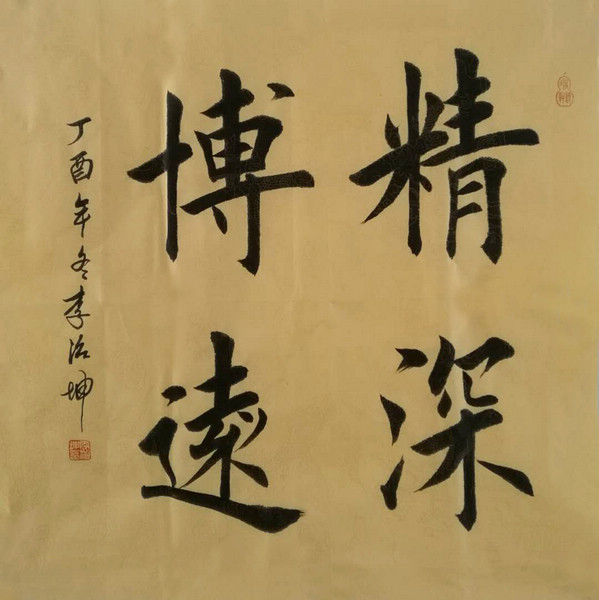 精深
博遠
丁酉年冬李治坤